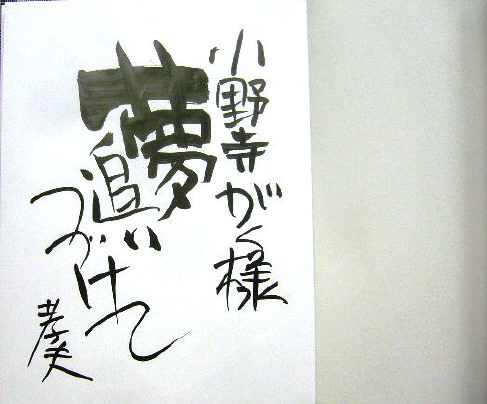 小野寺がく様
夢
追い
つづけて
孝夫